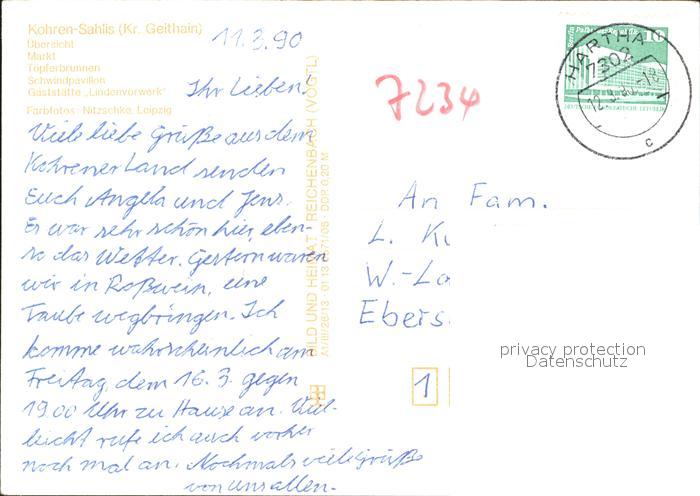 Kohren-Sahlis (Kr. Geithain)
Übersicht
Markt
Töpferbrunnen
Schwindpavillon
Gaststätte „Lindenvorwerk“
Farbfotos: Nitzschke, Leipzig
11.3.90
Ihr Lieben.
Viele liebe Grüße aus dem
Kohrener Land senden
Euch Angela und Jens.
Es war sehr schön hier, eben-
so das Wetter. Gestern waren
wir in Roßwein, eine
Taube wegbringen. Ich
komme wahrscheinlich am
Freitag, dem 16.3. gegen
19.00 Uhr zu Hause an. Viel-
leicht rufe ich auch vorher
noch mal an. Nochmals viele Grüße
von uns allen.
BILD UND HEIMAT REICHENBACH (VOGTL)
DDR 0,20 M
7234
HARTHA
7302
c
10
An Fam.
L. K
W.-La
Ebers
1
privacy protection
Datenschutz